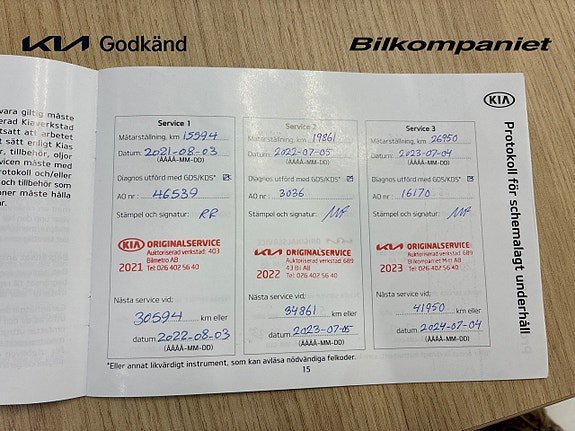 KIA Godkänd
Bilkompaniet
vara giltig måste
erad Kiaverkstad
tsatt att arbetet
t sätt enligt Kias
r, tillbehör, oljor
vicen måste med
rotokoll och/eller
och tillbehör som
oner måste hålla
ar.
KIA
Protokoll för schemalagt underhåll
Service 1
Mätarställning, km 15594
Datum: 2021-08-03
(ÅÅÅÅ-MM-DD)
Diagnos utförd med GDS/KDS*
AO nr: 46539
Stämpel och signatur: RR
KIA ORIGINALSERVICE
Auktoriserad verkstad: 403
Bilmetro AB
2021 Tel: 026 402 56 40
Nästa service vid;
30594 km eller
datum: 2022-08-03
(ÅÅÅÅ-MM-DD)
Service 2
Mätarställning, km 19861
Datum: 2022-07-05
(ÅÅÅÅ-MM-DD)
Diagnos utförd med GDS/KDS*
AO nr: 3036
Stämpel och signatur:
KIA ORIGINALSERVICE
Auktoriserad verkstad 689
43 Bil AB
2022 Tel: 026 402 56 40
Nästa service vid;
34861 km eller
datum: 2023-07-05
(ÅÅÅÅ-MM-DD)
Service 3
Mätarställning, km 26950
Datum: 2023-07-04
(ÅÅÅÅ-MM-DD)
Diagnos utförd med GDS/KDS*
AO nr: 16170
Stämpel och signatur:
KIA ORIGINALSERVICE
Auktoriserad verkstad 689
Bilkompaniet Mitt AB
2023 Tel: 026 402 56 40
Nästa service vid;
41950 km eller
datum: 2024-07-04
(ÅÅÅÅ-MM-DD)
*Eller annat likvärdigt instrument, som kan avläsa nödvändiga felkoder.
15